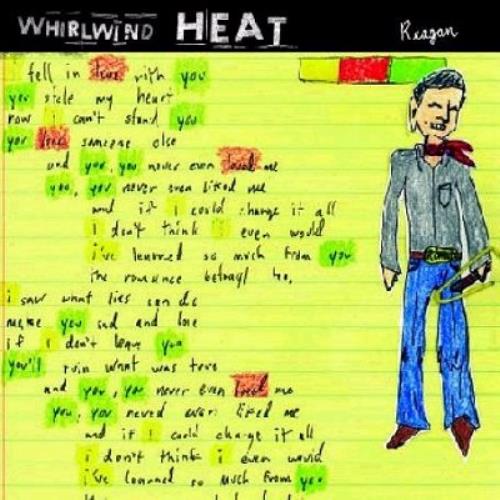 WHIRLWIND HEAT
Reagan
i fell in love with you
you stole my heart
now i can't stand you
you love someone else
and you, you never even loved me
you, you never even liked me
and if i could change it all
i don't think i even would
i've learned so much from you
the romance betrayl
i saw what lies can do
make you sad and lose
if i don't leave you
you'll ruin what was true
and you, you never even loved me
you, you never even liked me
and if i could change it all
i don't think i even would
i've learned so much from you